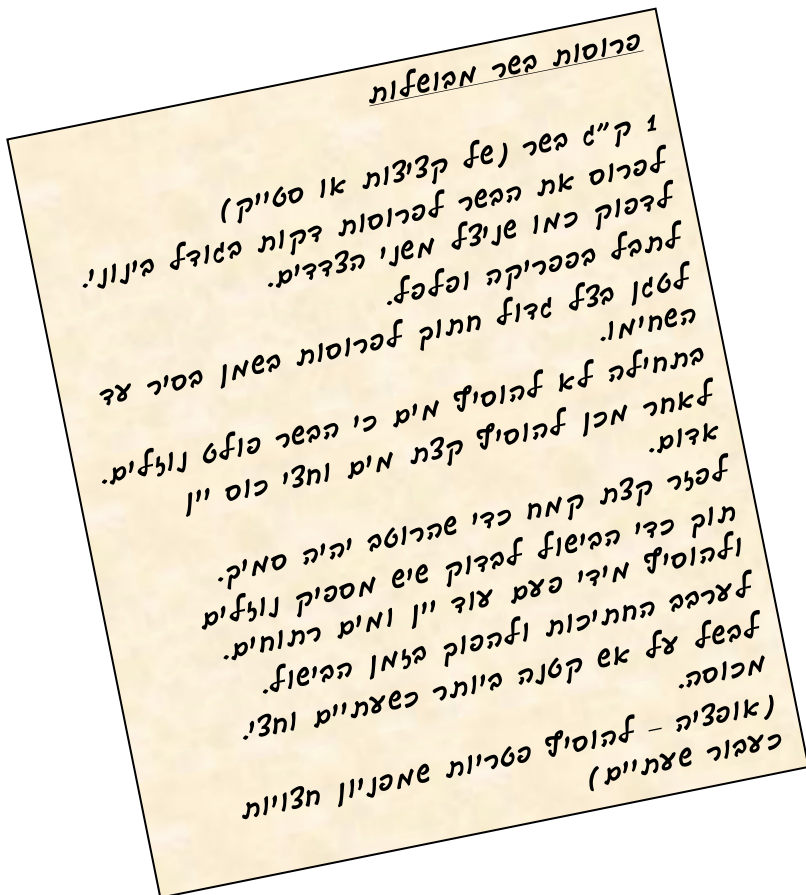 פרוסות בשר מבושלות
1 ק"ג בשר (של קציצות או סטייק)
לפרוס את הבשר לפרוסות דקות בגודל בינוני.
לדפוק כמו שניצל משני הצדדים.
לתבל בפפריקה ופלפל.
לטגן בצל גדול חתוך לפרוסות בשמן בסיר עד
השחימו.
בתחילה לא להוסיף מים כי הבשר פולט נוזלים.
לאחר מכן להוסיף קצת מים וחצי כוס יין
אדום.
לפזר קצת קמח כדי שהרוטב יהיה סמיק.
תוך כדי הבישול לבדוק שיש מספיק נוזלים
ולהוסיף מידי פעם עוד יין ומים רתוחים.
לערבב החתיכות ולהפוך בזמן הבישול.
לבשל על אש קטנה ביותר כשעתיים וחצי.
מכוסה.
(אופציה – להוסיף פטריות שמפניון חצויות
כעבור שעתיים)